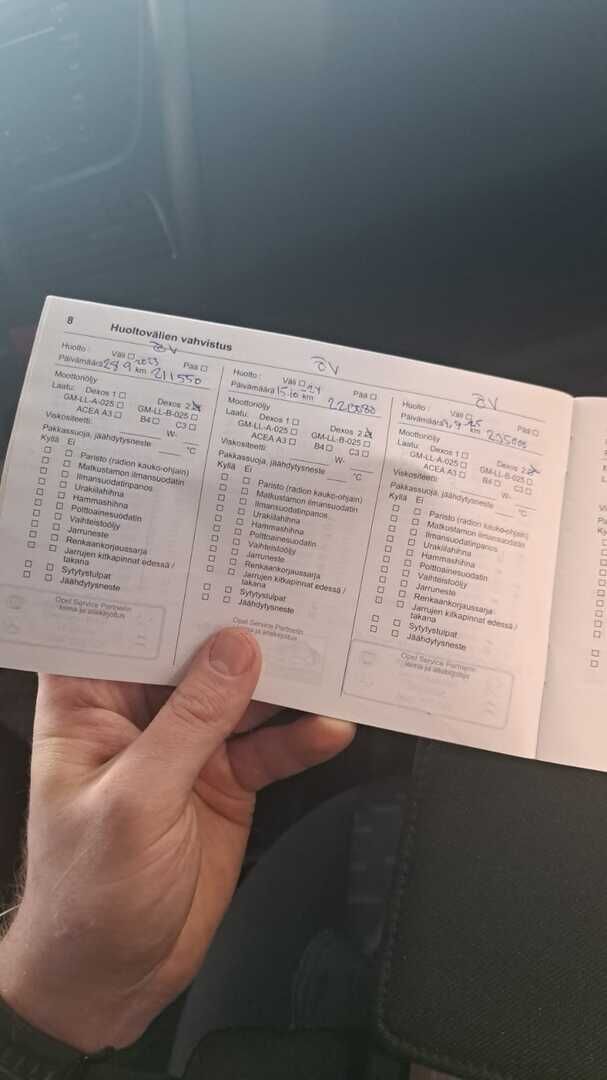 8
Huoltovälien vahvistus
ÖV
Huolto : Väli Pää
Päivämäärä 28.9 2023 km 211550
Moottoriöljy
Laatu: Dexos 1 Dexos 2
GM-LL-A-025 GM-LL-B-025
ACEA A3 B4 C3
Viskositeetti: W-
Pakkassuoja, jäähdytysneste °C
Kyllä Ei
Paristo (radion kauko-ohjain)
Matkustamon ilmansuodatin
Ilmansuodatinpanos
Urakiilahihna
Hammashihna
Polttoainesuodatin
Vaihteistoöljy
Jarruneste
Renkaankorjaussarja
Jarrujen kitkapinnat edessä /
takana
Sytytystulpat
Jäähdytysneste
Opel Service Partnerin
leima ja allekirjoitus
ÖV
Huolto : Väli Pää
Päivämäärä 15.10 24 km
Moottoriöljy
Laatu: Dexos 1 Dexos 2
GM-LL-A-025 GM-LL-B-025
ACEA A3 B4 C3
Viskositeetti: W-
Pakkassuoja, jäähdytysneste °C
Kyllä Ei
Paristo (radion kauko-ohjain)
Matkustamon ilmansuodatin
Ilmansuodatinpanos
Urakiilahihna
Hammashihna
Polttoainesuodatin
Vaihteistoöljy
Jarruneste
Renkaankorjaussarja
Jarrujen kitkapinnat edessä /
takana
Sytytystulpat
Jäähdytysneste
Opel Service Partnerin
leima ja allekirjoitus
ÖV
Huolto : Väli Pää
Päivämäärä km 235000
Moottoriöljy
Laatu: Dexos 1 Dexos 2
GM-LL-A-025 GM-LL-B-025
ACEA A3 B4 C3
Viskositeetti: W-
Pakkassuoja, jäähdytysneste °C
Kyllä Ei
Paristo (radion kauko-ohjain)
Matkustamon ilmansuodatin
Ilmansuodatinpanos
Urakiilahihna
Hammashihna
Polttoainesuodatin
Vaihteistoöljy
Jarruneste
Renkaankorjaussarja
Jarrujen kitkapinnat edessä /
takana
Sytytystulpat
Jäähdytysneste
Opel Service Partnerin
leima ja allekirjoitus